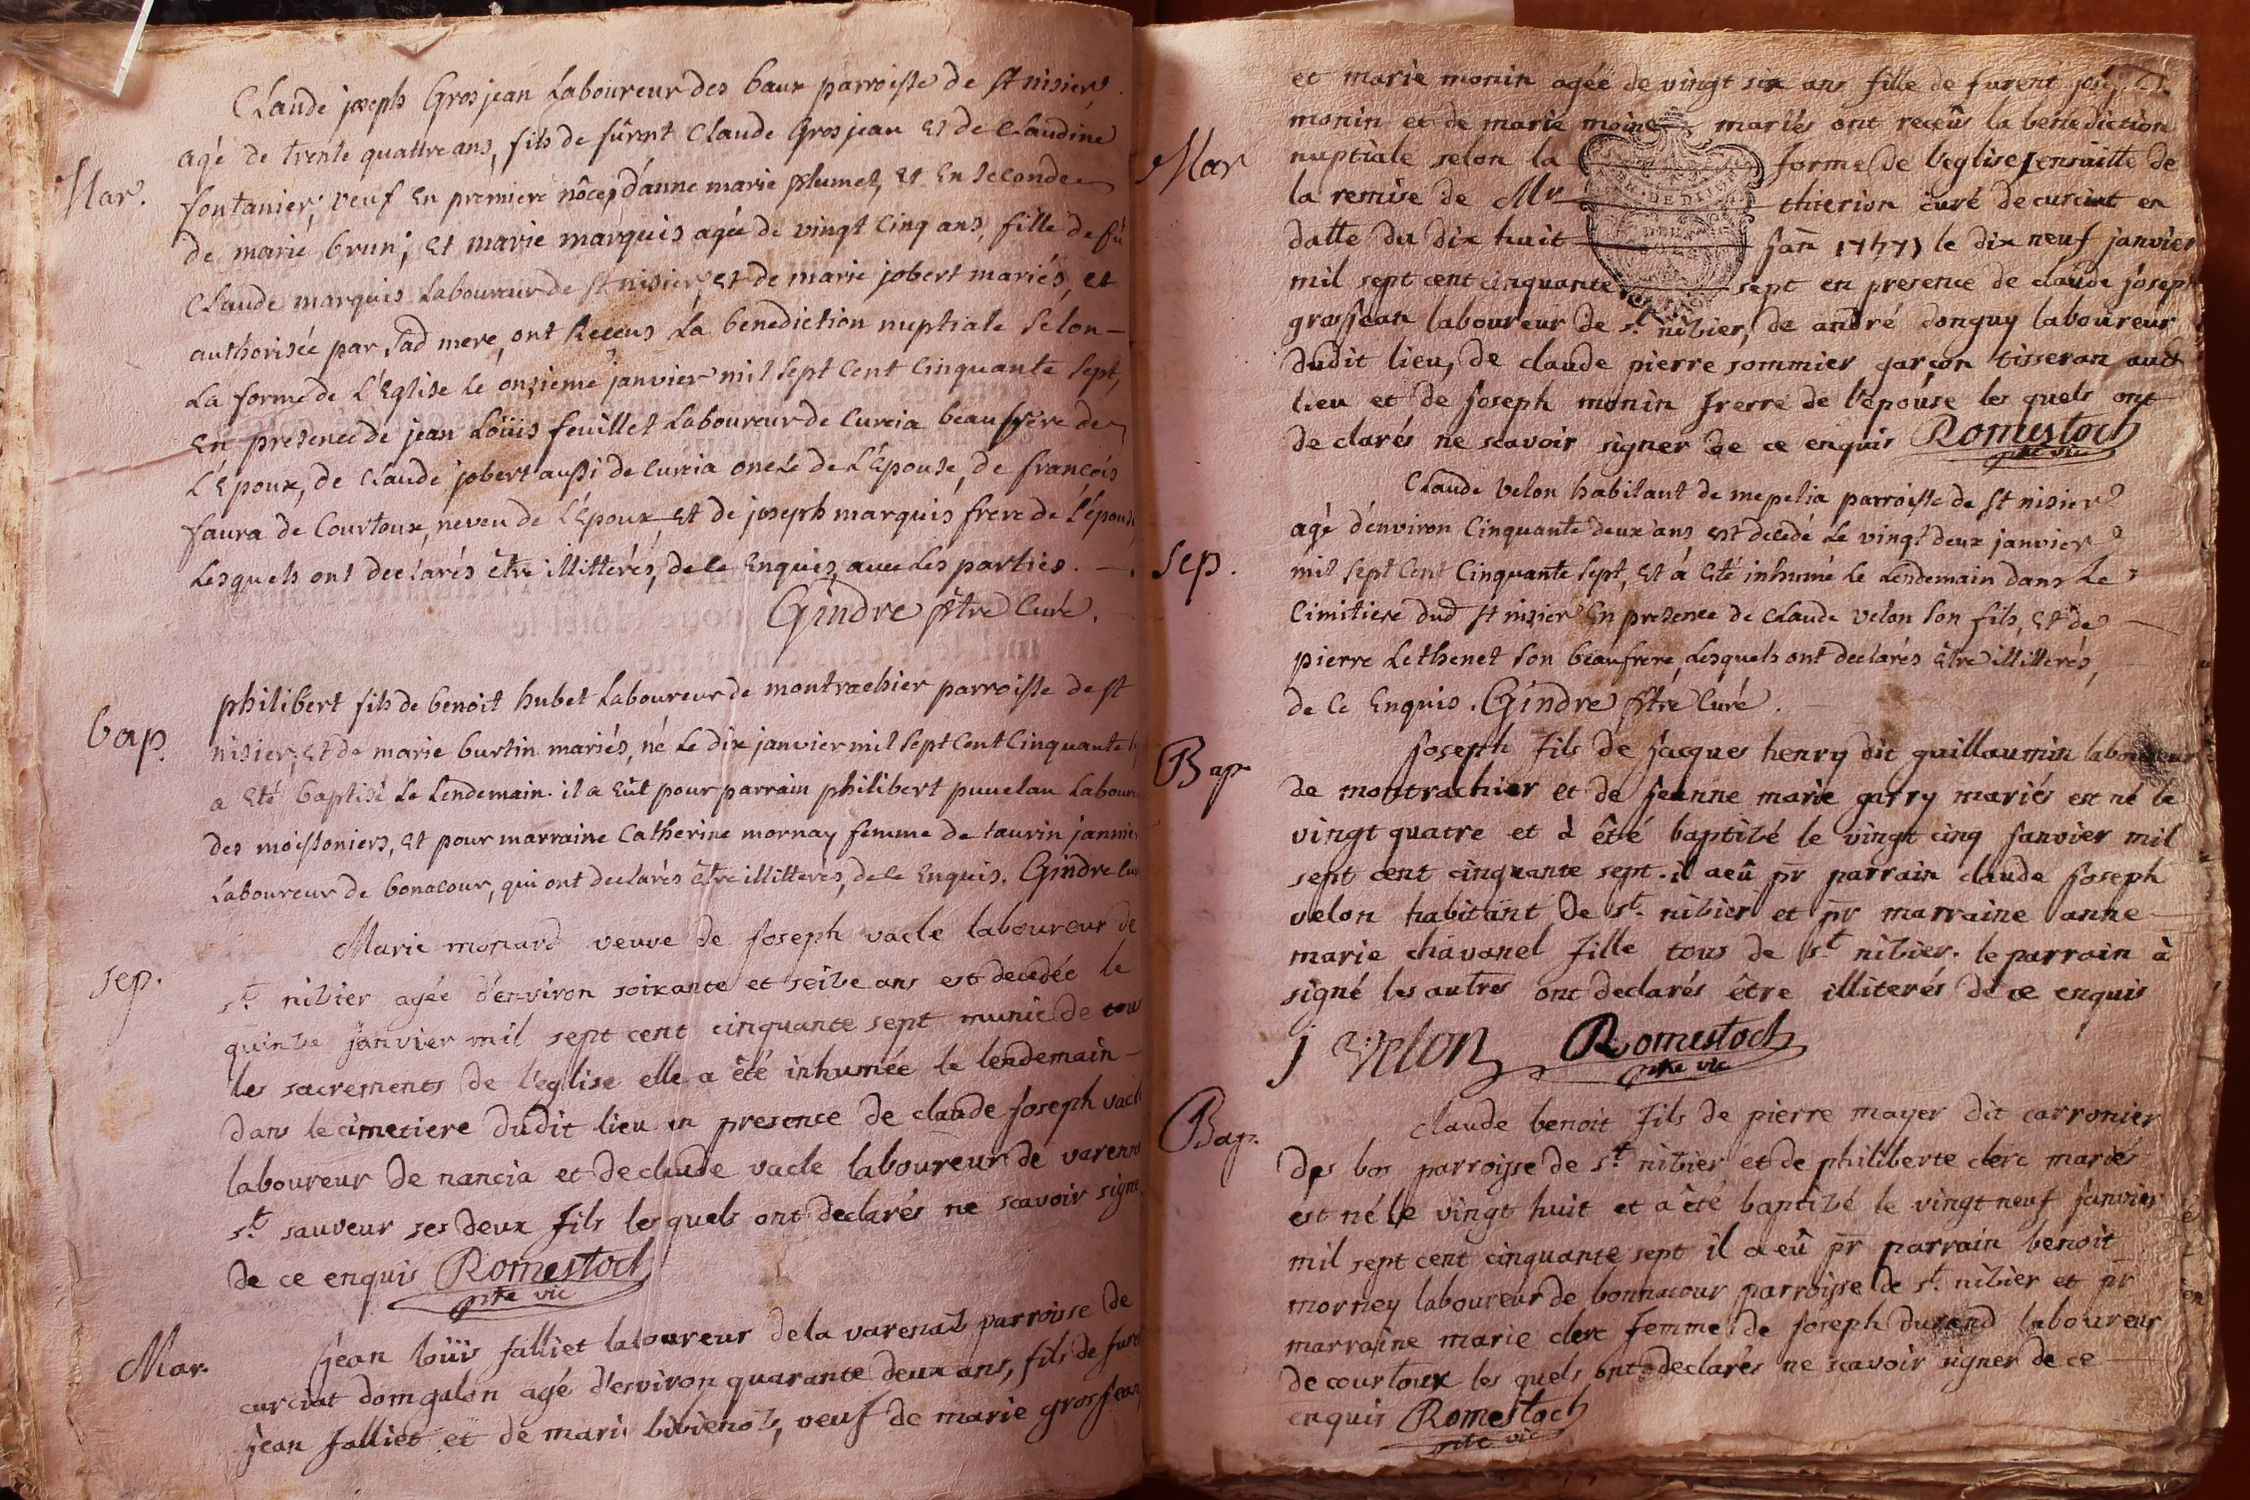 Claude joseph Grosjean Laboureur des baux parroisse de st nisier
Mar.
agé de trente quattre ans, fils de fûrent Claude Grosjean et de Claudine
fontanier, veuf en premiere nôces d'anne marie plumet, et en seconde
de marie brun; et marie marquis agée de vingt cinq ans, fille de fû
Claude marquis Laboureur de st nisier, et de marie jobert mariés, et
authorisée par sad mere, ont Reçeus la benediction nuptiale selon
la forme de l'Eglise le onzieme janvier mil sept cent cinquante sept,
en presence de jean Loüis feuillet Laboureur de Curcia beaufrere de
l'Epoux, de Claude jobert aussi de Curcia oncle de l'Epouse, de françois
faura de Courtoux, neveu de l'Epoux, et de joseph marquis frere de l'épouse
Lesquels ont declarés être illitterés, de ce enquis, avec les parties.
Gindre ptre Curé.
bap.
philibert fils de benoit hubet Laboureur de montrachier parroisse de st
nisier, et de marie burtin mariés, né le dix janvier mil sept cent cinquante
a eté baptisé le lendemain. il a eût pour parrain philibert puvelan Labour
des moissoniers, et pour marraine Catherine mornay femme de taurin jannin
Laboureur de bonacour, qui ont declarés être illitterés, de ce enquis. Gindre Cur
sep.
Marie monard veuve de joseph vacle laboureur de
st nizier agée d'environ soixante et seize ans est decedée le
quinze janvier mil sept cent cinquante sept munie de tous
les sacrements de l'eglise elle a été inhumée le lendemain
dans le cimetiere dudit lieu en presence de claude joseph vacle
laboureur de nancia et de claude vacle laboureur de varenne
st sauveur ses deux fils lesquels ont declarés ne scavoir signe
de ce enquis Romestoch
ptre vic
Mar.
jean loüis falliet laboureur de la varenas parroisse de
curciat domgalon agé d'environ quarante deux ans, fils de fure
jean falliet et de marie, veuf de marie grosjean
et marie monin agée de vingt six ans fille de furent
Mar
monin et de marie moine mariés ont receûs la benediction
nuptiale selon la forme de l'eglise ensuitte de
la remise de Mr thierion curé de curciat en
datte du dix huit jan 1757 le dix neuf janvier
mil sept cent cinquante sept en presence de claude joseph
grosjean laboureur de st nizier, de andré donguy laboureur
dudit lieu, de claude pierre sommier garçon tisseran aud
lieu et de joseph monin frerre de l'epouse les quels ont
declarés ne scavoir signer de ce enquis Romestoch
ptre vic
sep.
Claude velon habitant de mepelia parroisse de st nisier
agé d'environ Cinquante deux ans est decedé le vingt deux janvier
mil sept Cent Cinquante sept, et a eté inhumé le lendemain dans le
Cimitiere dud st nisier en presence de Claude velon son fils, et de
pierre Lethenet son beaufrere, Lesquels ont declarés être illitterés,
de ce enquis. Gindre ptre Curé.
Bap
joseph fils de jacques henry dit guillaumin laboureur
de montrachier et de jeanne marie garry mariés est né le
vingt quatre et à été baptizé le vingt cinq janvier mil
sept cent cinquante sept. il a eû pr parrain claude joseph
velon habitant de st nizier et pr marraine anne
marie chavanel fille tous de st nizier. le parrain à
signé les autres ont declarés être illiterés de ce enquis
j velon Romestoch
ptre vic
Bap.
claude benoit fils de pierre mayer dit carronier
des bos parroisse de st nizier et de philiberte clerc mariés
est né le vingt huit et a été baptizé le vingt neuf janvier
mil sept cent cinquante sept il a eû pr parrain benoit
morney laboureur de bonnacour parroisse de st nizier et pr
marraine marie clerc femme de joseph durand laboureur
de courtoux les quels ont declarés ne scavoir signer de ce
enquis Romestoch
ptre vic